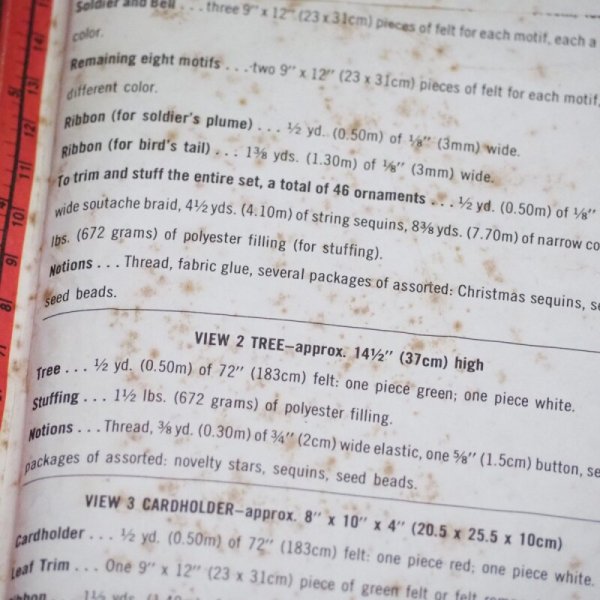 Soldier and Bell . . . three 9" x 12" (23 x 31cm) pieces of felt for each motif, each a
color.
Remaining eight motifs . . . two 9" x 12" (23 x 31cm) pieces of felt for each motif,
different color.
Ribbon (for soldier's plume) . . . ½ yd. (0.50m) of ⅛" (3mm) wide.
Ribbon (for bird's tail) . . . 1⅜ yds. (1.30m) of ⅛" (3mm) wide.
To trim and stuff the entire set, a total of 46 ornaments . . . ½ yd. (0.50m) of ⅛"
wide soutache braid, 4½ yds. (4.10m) of string sequins, 8⅜ yds. (7.70m) of narrow co
lbs. (672 grams) of polyester filling (for stuffing).
Notions . . . Thread, fabric glue, several packages of assorted: Christmas sequins, se
seed beads.
VIEW 2 TREE—approx. 14½" (37cm) high
Tree . . . ½ yd. (0.50m) of 72" (183cm) felt: one piece green; one piece white.
Stuffing . . . 1½ lbs. (672 grams) of polyester filling.
Notions . . . Thread, ⅜ yd. (0.30m) of ¾" (2cm) wide elastic, one ⅝" (1.5cm) button, se
packages of assorted: novelty stars, sequins, seed beads.
VIEW 3 CARDHOLDER—approx. 8" x 10" x 4" (20.5 x 25.5 x 10cm)
Cardholder . . . ½ yd. (0.50m) of 72" (183cm) felt: one piece red; one piece white.
Leaf Trim . . . One 9" x 12" (23 x 31cm) piece of green felt or felt
14
13
12
11
10
9
8